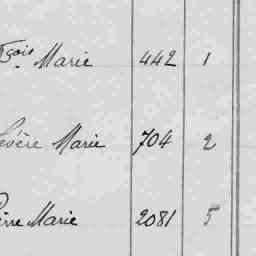 çois Marie 442 1
Sévère Marie 704 2
Pierre Marie 2081 5